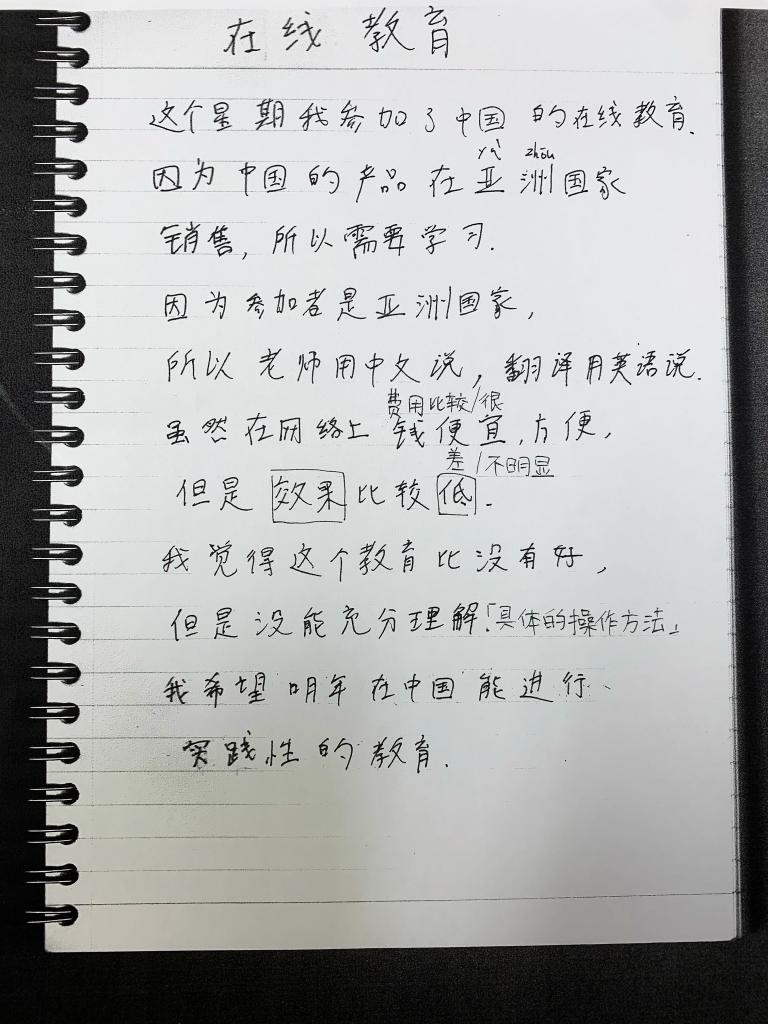 在线教育
这个星期我参加了中国的在线教育.
yà zhōu
因为中国的产品在亚洲国家
销售,所以需要学习.
因为参加者是亚洲国家,
所以老师用中文说,翻译用英语说.
费用比较/很
虽然在网络上钱便宜,方便,
差/不明显
但是效果比较低.
我觉得这个教育比没有好,
但是没能充分理解「具体的操作方法」
我希望明年在中国能进行
实践性的教育.